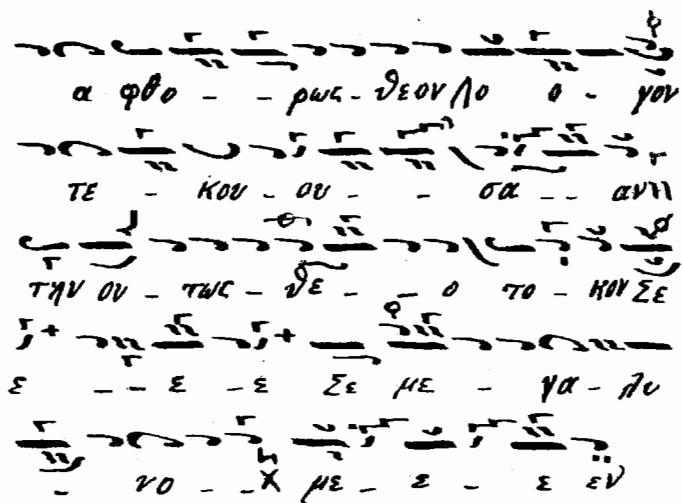 α φθο - - ρως - θεον λο ο - γον
τε - κου - ου - - σα - - αν
την ου - τως - θε - - ο το - κον Σε
ε - - ε - ε Σε με - γα - λυ
- νο - - με - ε - ε εν